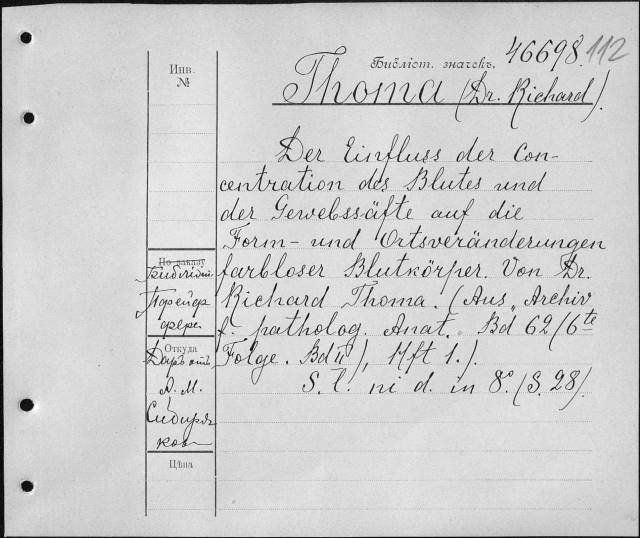 Библіот. значекъ. 46698. 112
Инв.
№
Thoma (Dr. Richard).
Der Einfluss der Con-
centration des Blutes und
der Gewebssäfte auf die
Form- und Ortsveränderungen
farbloser Blutkörper. Von Dr.
Richard Thoma. (Aus „Archiv
f. patholog. Anat. Bd 62/6te
Folge. Bd II), Hft 1.)
S. l. ni d. in 8°. (S. 28).
По заказу
Библіот.
Порейер
фере.
Откуда
Даръ отъ
А. М.
Сибиря
кова
Цѣна